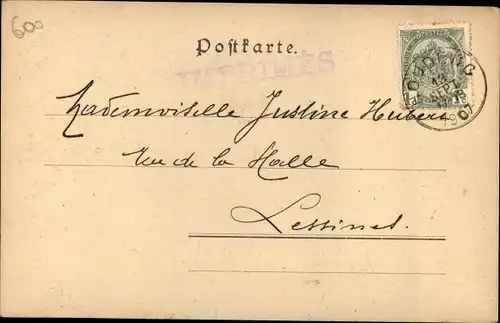 600
Postkarte.
IMPRIMÉS
Mademoiselle Justine Hubert
Rue de la Halle
Lessines.
1907